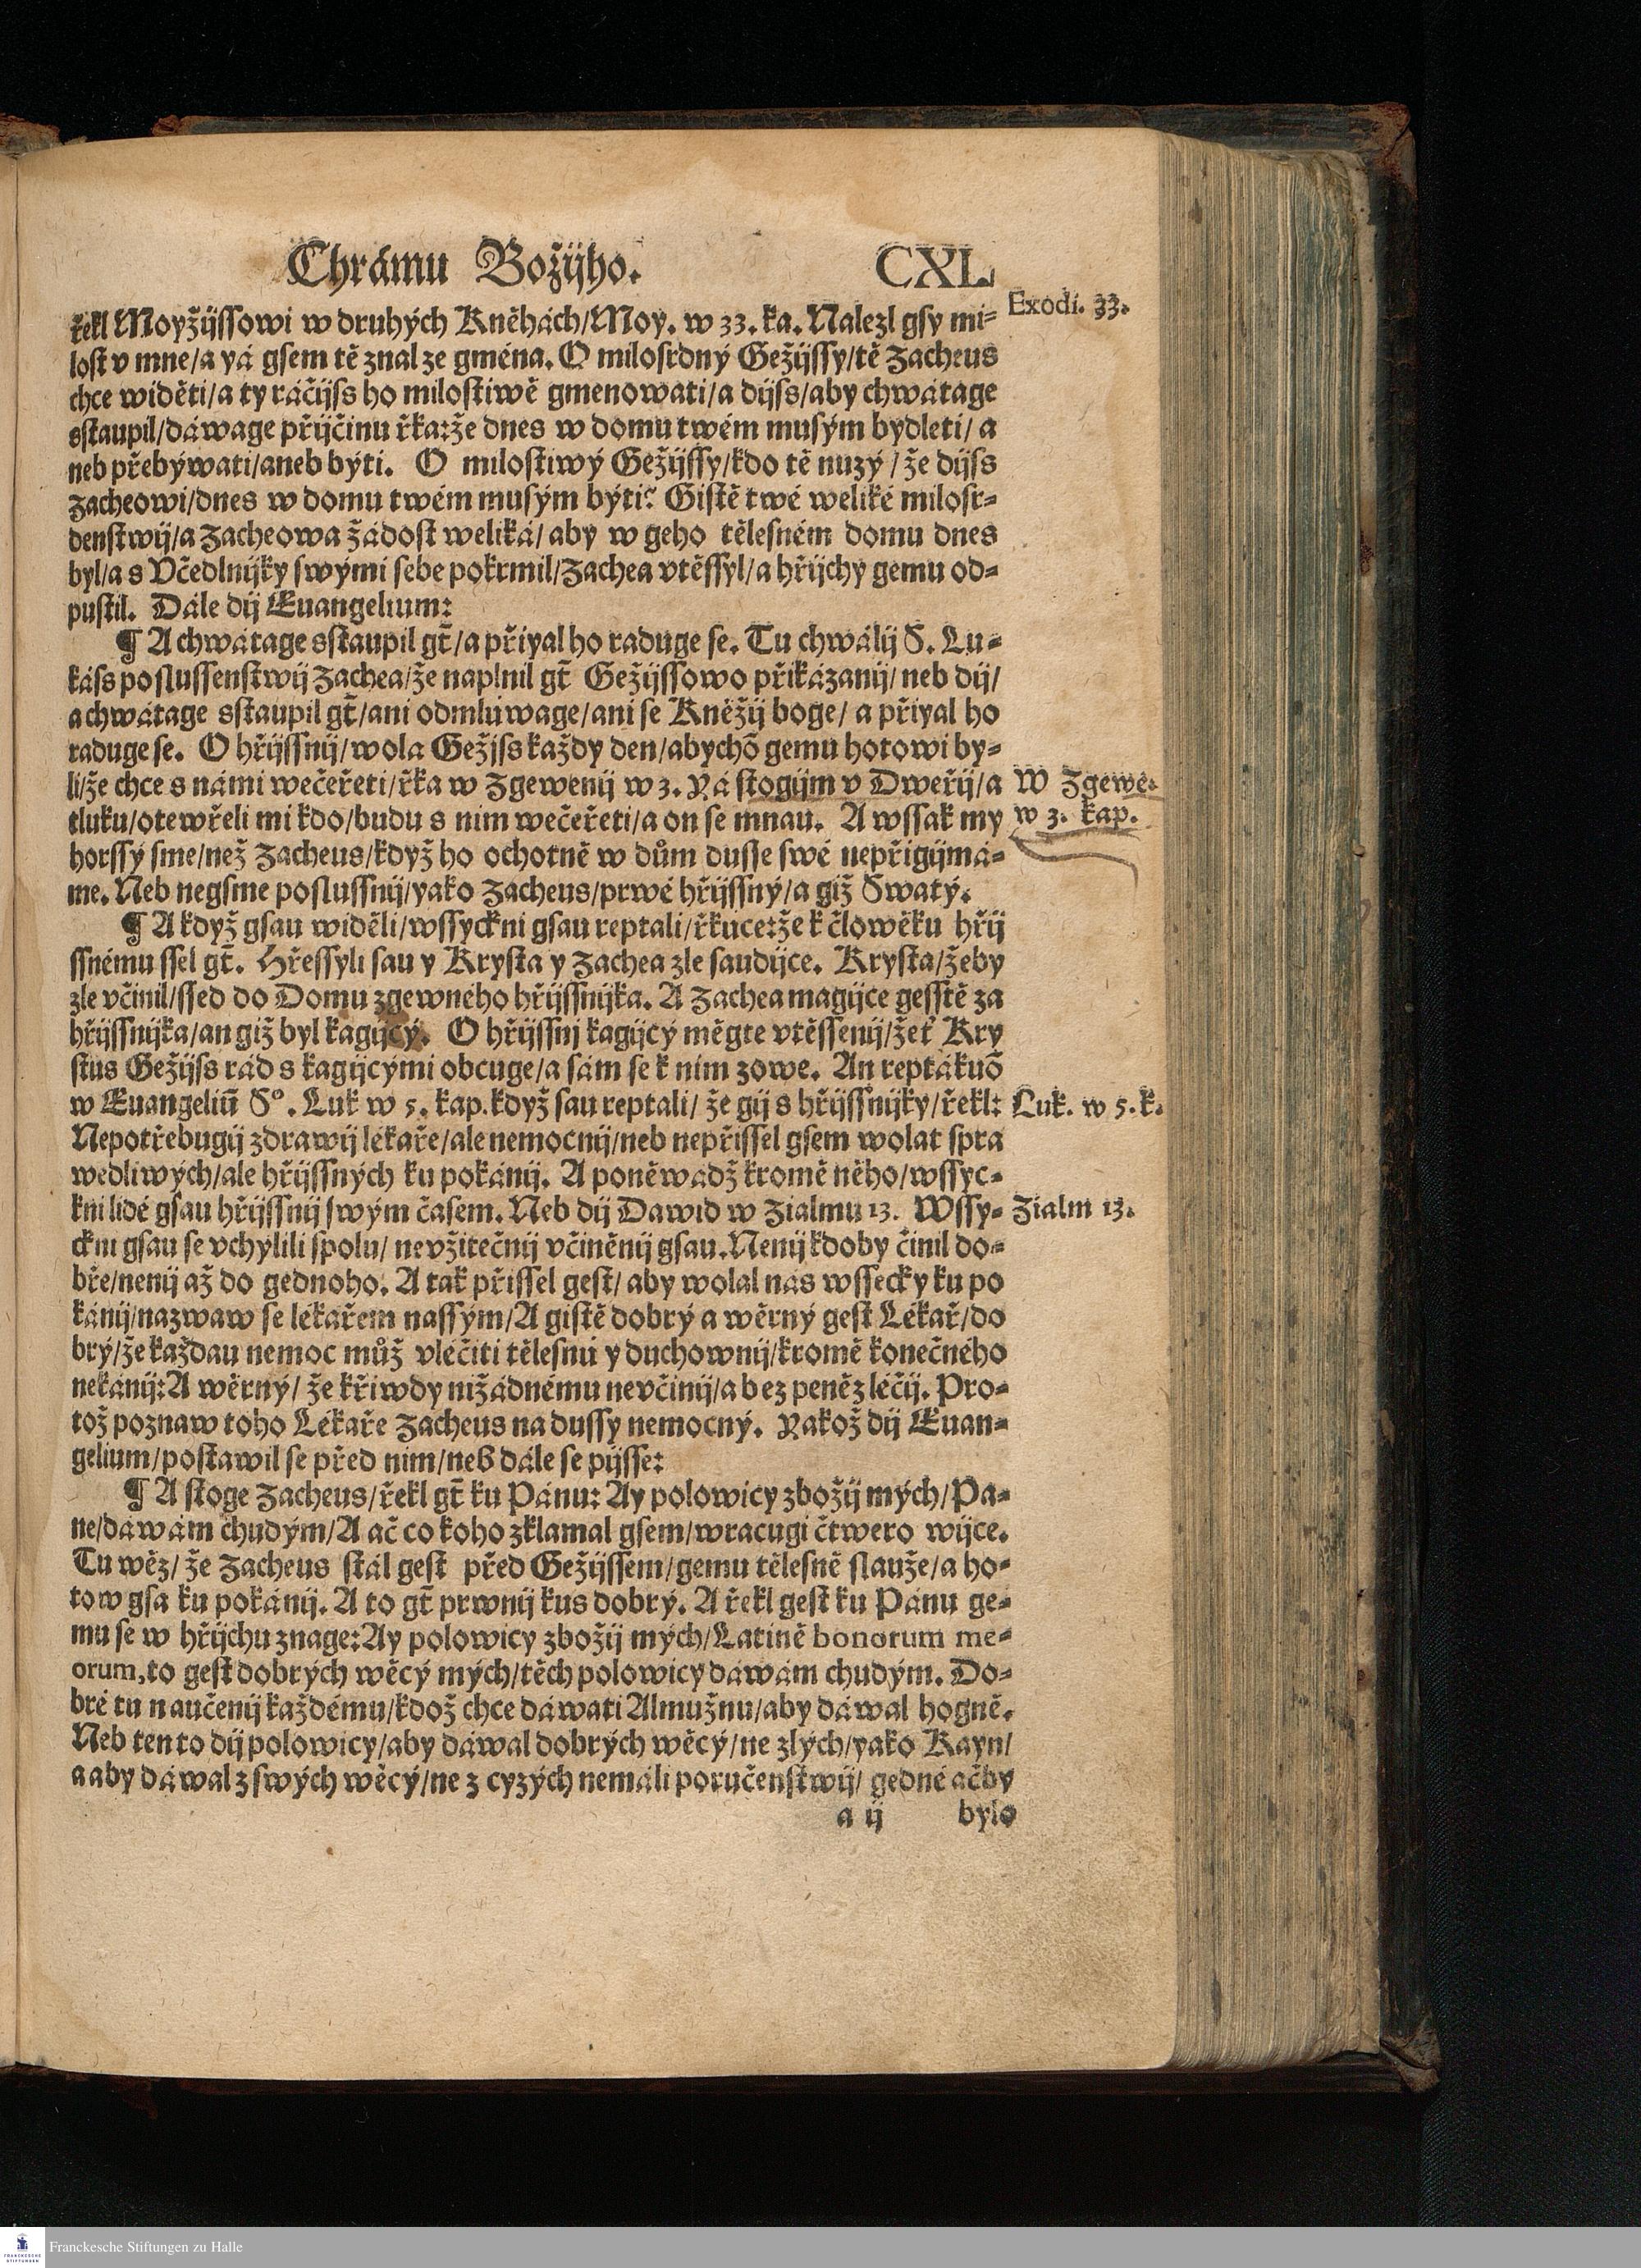 Chrámu Božijho. CXL
řekl Moyžijssowi w druhých Kněhách/Moy. w 33. ka. Nalezl gsy mi-
Exodi. 33.
lost v mne/a yá gsem tě znal ze gména. O milosrdný Gežijssy/tě Zacheus
chce widěti/a ty ráčijss ho milostiwě gmenowati/a dijss/aby chwátage
sstaupil/dáwage přijčinu řka:že dnes w domu twém musým bydleti/ a
neb přebýwati/aneb býti. O milostiwý Gežijssy/kdo tě nuzý/že dijss
Zacheowi/dnes w domu twém musým býti? Gistě twé weliké milosr-
denstwij/a Zacheowa žádost weliká/ aby w geho tělesném domu dnes
byl/a s Včedlnijky swými sebe pokrmil/Zachea vtěssyl/a hřijchy gemu od-
pustil. Dále dij Euangelium:
¶ A chwátage sstaupil gt̃/a přiyal ho raduge se. Tu chwálij S. Lu-
káss poslussenstwij Zachea/že naplnil gt̃ Gežijssowo přikázanij/ neb dij/
a chwátage sstaupil gt̃/ani odmlúwage/ani se Kněžij boge/ a přiyal ho
raduge se. O hřijssnij/wolá Gežjss každy den/abychõ gemu hotowi by-
li/že chce s námi wečeřeti/řka w Zgewenij w 3. Yá stogijm v Dweřij/a
W Zgewe.
tluku/otewřeli mi kdo/budu s nim wečeřeti/a on se mnau. A wssak my
w 3. kap.
horssý sme/než Zacheus/když ho ochotně w dům dusse swé nepřigijmá-
me. Neb negsme poslussnij/yako Zacheus/prwé hřijssný/a giž Swatý.
¶ A když gsau widěli/wssyckni gsau reptali/řkúce:že k člowěku hřij
ssnému ssel gt̃. Hřessyli sau y Krysta y Zachea zle saudijce. Krysta/žeby
zle včinil/ssed do Domu zgewného hřijssnijka. A Zachea magijce gesstě za
hřijssnijka/an giž byl kagijcý. O hřijssnj kagijcý měgte vtěssenij/žeť Kry
stus Gežijss rád s kagijcými obcuge/a sám se k nim zowe. An reptákuõ
w Euangeliũ Sº. Luk w 5. kap. když sau reptali/ že gij s hřijssnijky/řekl:
Luk. w 5. k.
Nepotřebugij zdrawij lékaře/ale nemocnij/neb nepřissel gsem wolat spra
wedliwých/ale hřijssných ku pokánij. A poněwádž kromě něho/wssyc-
kni lidé gsau hřijssnij swým časem. Neb dij Dawid w Zialmu 13. Wssy-
Zialm 13.
ckni gsau se vchylili spolu/ nevžitečnij včiněnij gsau. Nenij kdoby činil do-
bře/nenij až do gednoho. A tak přissel gest/ aby wolal nás wssecky ku po
kánij/nazwaw se lékařem nassým/A gistě dobrý a wěrný gest Lékař/do
brý/že každau nemoc můž vléčiti tělesnú y duchownij/kromě konečného
nekánij:A wěrný/ že křiwdy nižádnému nevčinij/a bez peněz léčij. Pro-
tož poznaw toho Lékaře Zacheus na dussy nemocný. Yakož dij Euan-
gelium/postawil se před nim/neb dále se pijsse:
¶ A stoge Zacheus/řekl gt̃ ku Pánu: Ay polowicy zbožij mých/Pa-
ne/dáwám chudým/A ač co koho zklamal gsem/wracugi čtwero wijce.
Tu wěz/ že Zacheus stál gest před Gežijssem/gemu tělesně slauže/a ho-
tow gsa ku pokánij. A to gt̃ prwnij kus dobrý. A řekl gest ku Pánu ge-
mu se w hřijchu znage:Ay polowicy zbožij mých/Latině bonorum me-
orum, to gest dobrých wěcý mých/těch polowicy dáwám chudým. Do-
bré tu naučenij každému/kdož chce dáwati Almužnu/aby dáwal hogně.
Neb tento dij polowicy/aby dáwal dobrých wěcý/ne zlých/yako Kayn/
a aby dáwal z swých wěcý/ne z cyzých nemáli poručenstwij/ gedné ačby
a ij bylo
Franckesche Stiftungen zu Halle